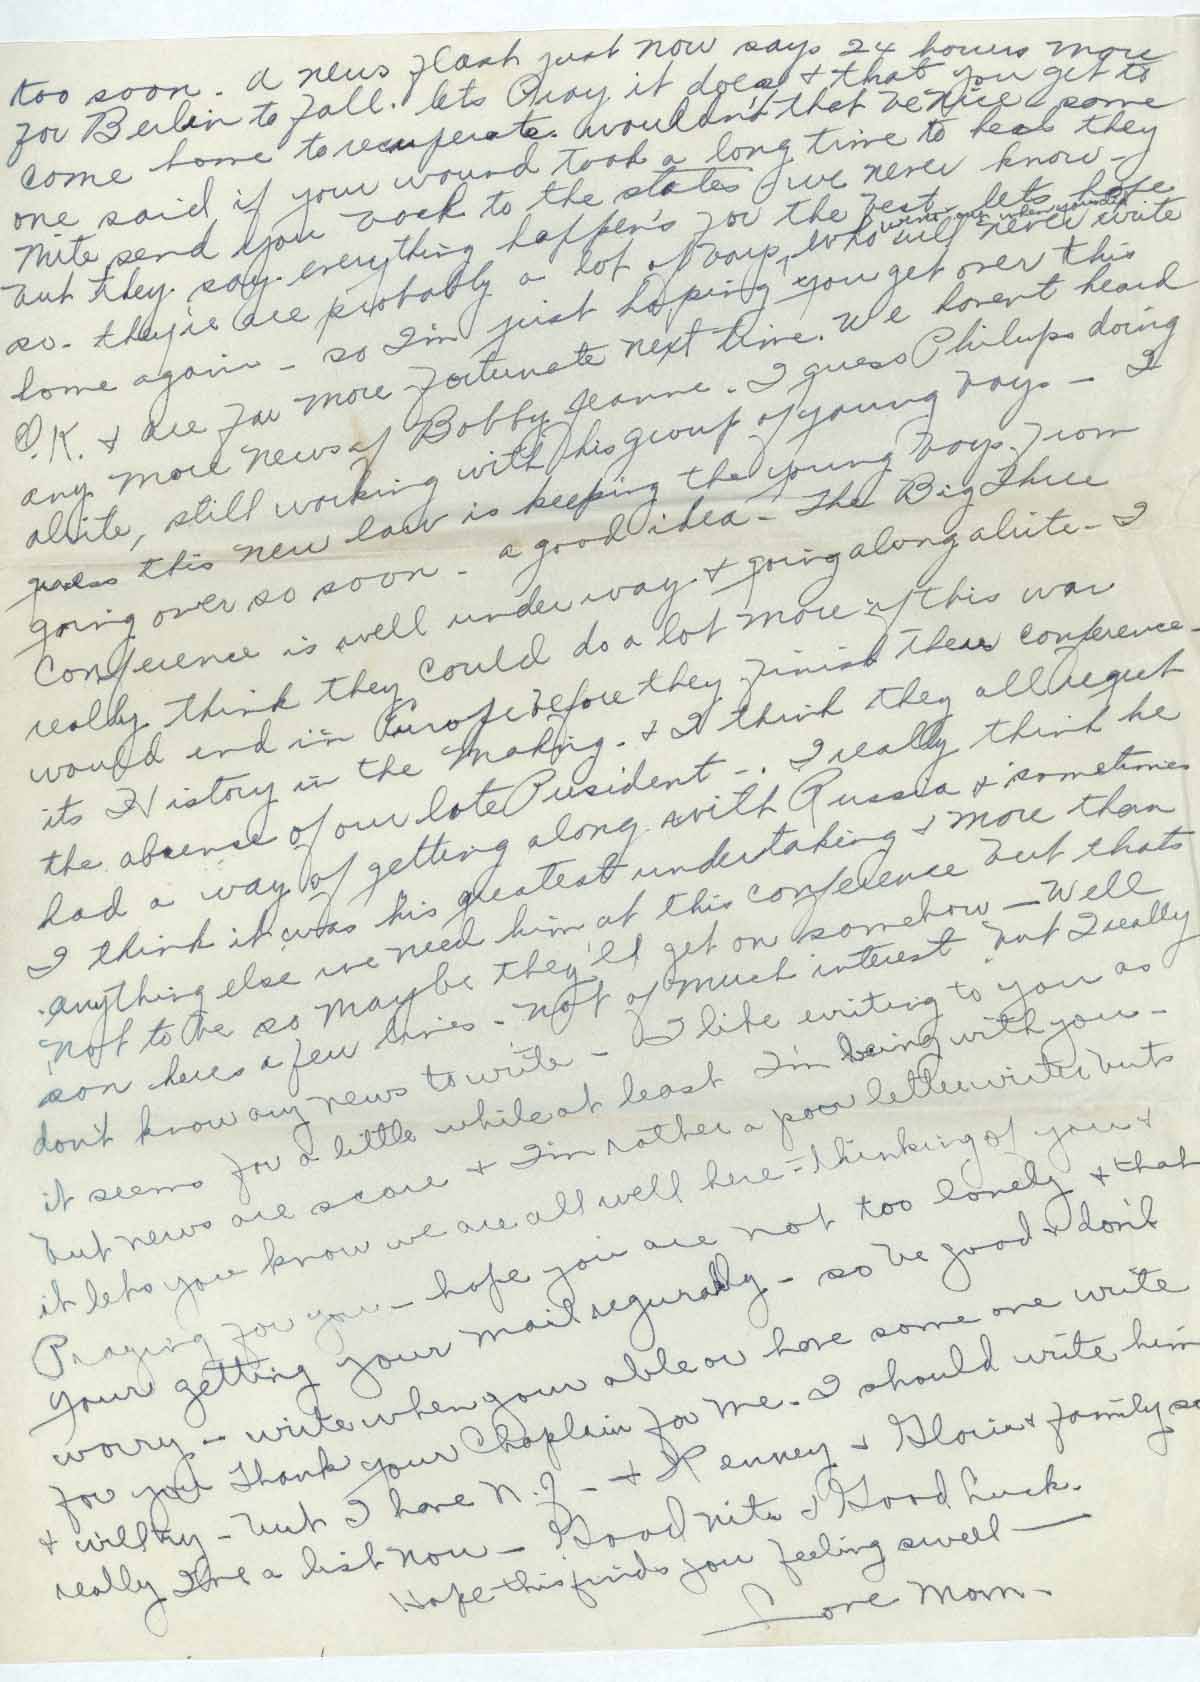 too soon. A news flash just now says 24 hours more
for Berlin to fall. lets Pray it does & that you get to
come home to recuperate. wouldn't that be nice - some
one said if your wound took a long time to heal they
mite send you back to the states - we never know -
but they say everything happen's for the best - lets hope
so - they're are probably a lot of boys, who will never write
home again - so I'm just hoping you get over this
O.K. & are far more fortunate next time. We haven't heard
any more news of Bobby Jeanne. I guess Philups doing
alrite, still working with his group of young boys - I
guess this new law is keeping the young boys from
going over so soon - a good idea - The Big Three
Conference is well under way & going along alrite - I
really think they could do a lot more if this war
would end in Europe before they finish there conference -
its History in the making. & I think they all regret
the absense of our late President -. I really think he
had a way of getting along with Russia & sometimes
I think it was his greatest undertaking & more than
anything else we need him at this conference but thats
not to be so maybe they'll get on somehow - Well
son heres a few lines - not of much interest but I really
don't know any news to write - I like writing to you as
it seems for a little while at least I'm being with you -
but news are scare & I'm rather a poor letter writer but
it lets you know we are all well here - thinking of you &
Praying for you - hope you are not too lonely & that
your getting your mail regurally - so be good & don't
worry - write when your able or have some one write
for you Thank your Chaplain for me - I should write him
& will try - but I have N.J. - & Kenney & Gloria & family so
really I've a list now - Good nite & Good Luck.
Hope this finds you feeling swell -
Love Mom -